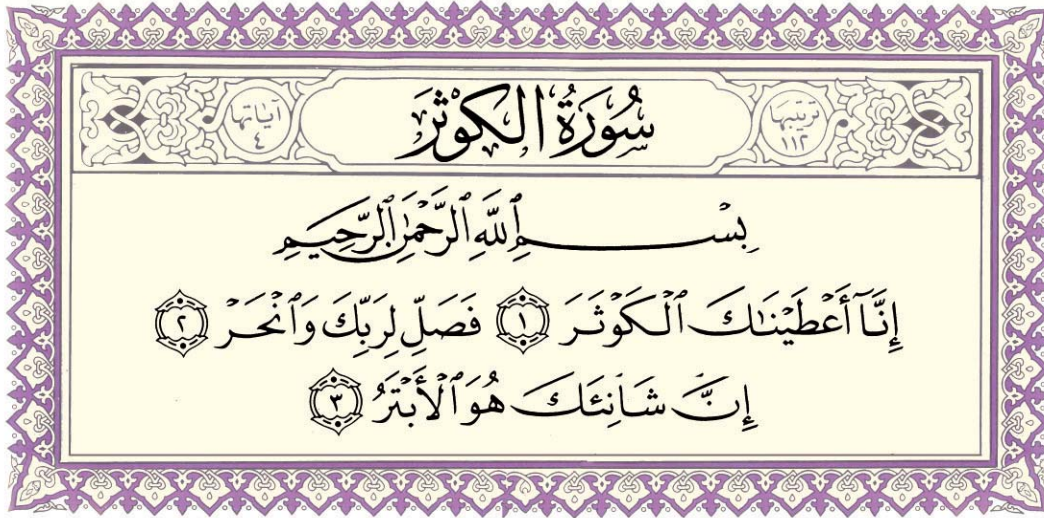 ترتيبها ١١٢
سُورَةُ الْكَوْثَرَ
آيَاتها ٤
بِسْمِ ٱللَّهِ ٱلرَّحْمَٰنِ ٱلرَّحِيمِ
إِنَّآ أَعْطَيْنَٰكَ ٱلْكَوْثَرَ ١ فَصَلِّ لِرَبِّكَ وَٱنْحَرْ ٢
إِنَّ شَانِئَكَ هُوَ ٱلْأَبْتَرُ ٣